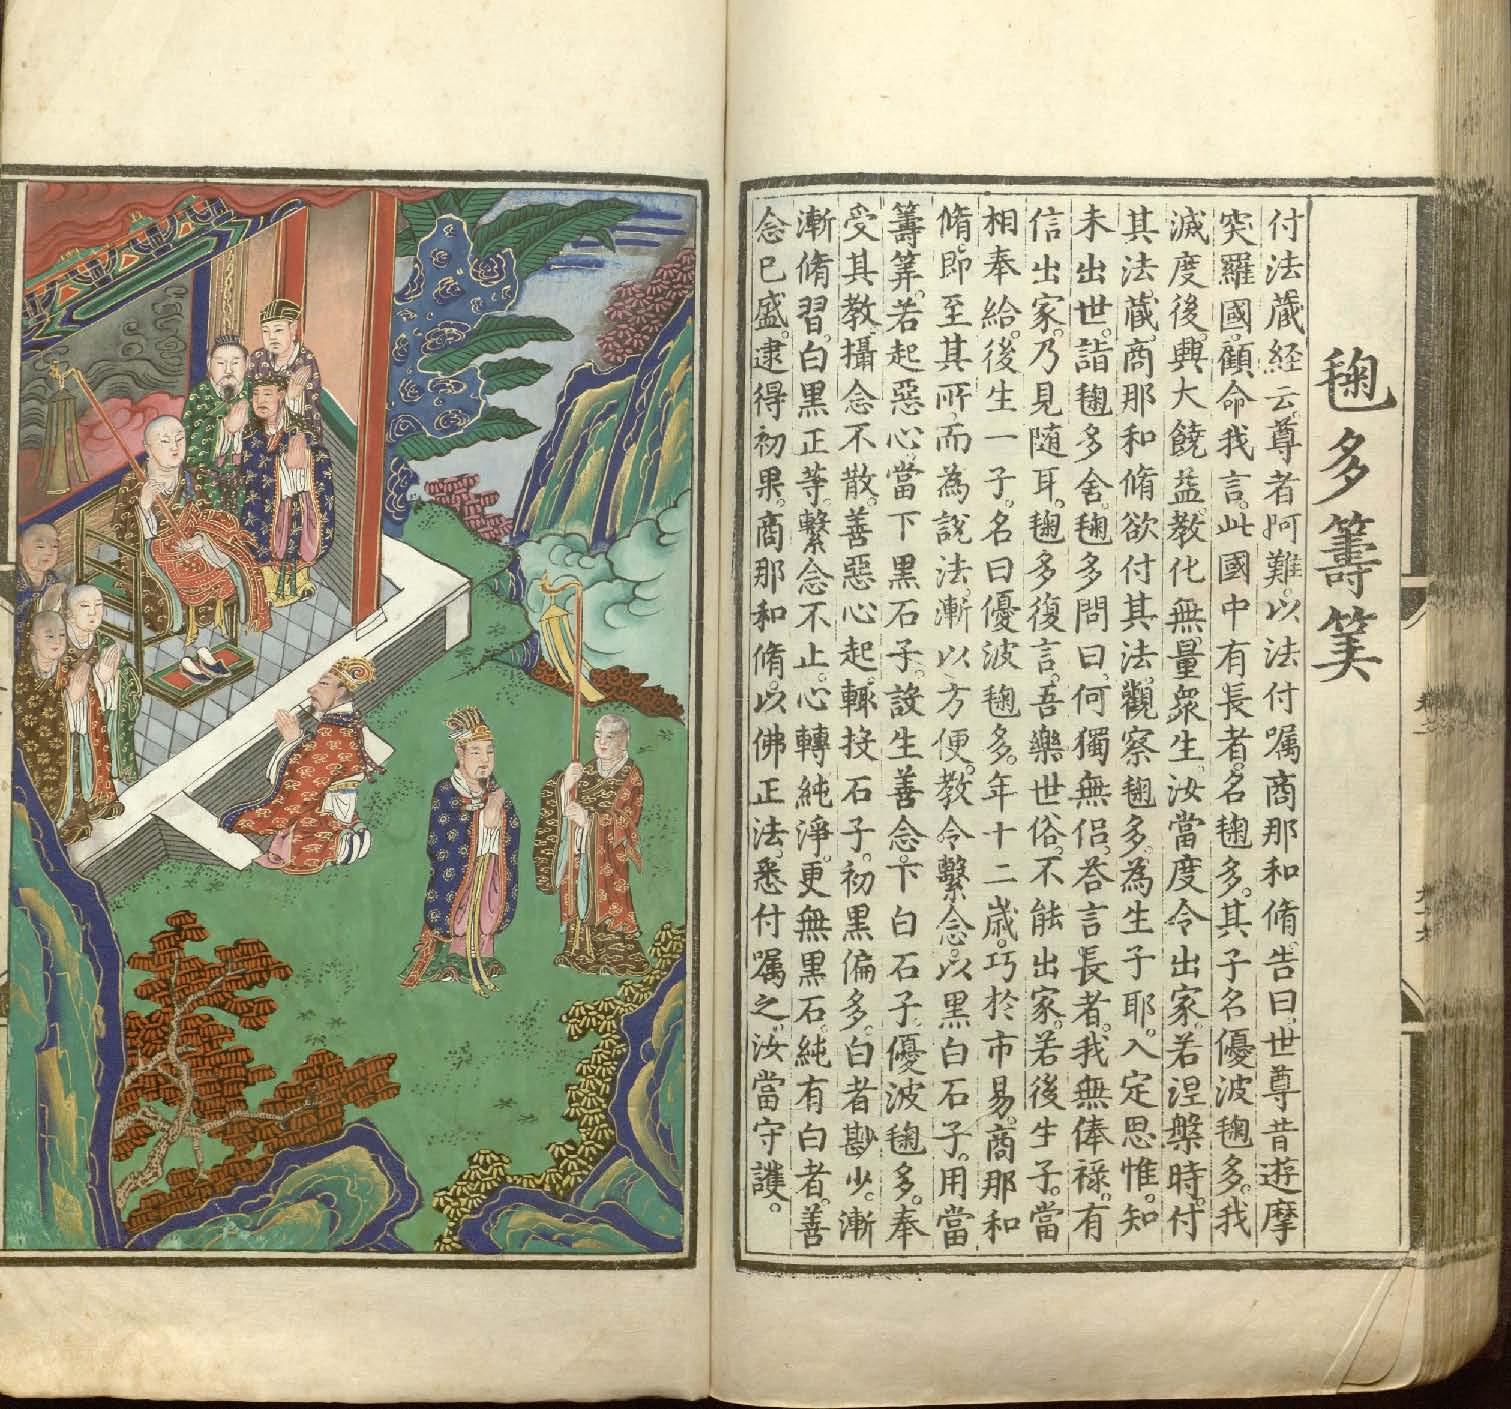 毱多籌筭
付法藏経云。尊者阿難。以法付嘱商那和脩。告曰。世尊昔遊摩
突羅國。顧命我言。此國中有長者。名毱多。其子名優波毱多。我
滅度後。興大饒益。教化無量眾生。汝當度令出家。若涅槃時。付
其法藏。商那和脩欲付其法。觀察毱多。為生子耶。入定思惟。知
未出世。詣毱多舍。毱多問曰。何獨無侶。答言長者。我無俸祿。有
信出家。乃見随耳。毱多復言。吾樂世俗。不能出家。若後生子。當
相奉給。後生一子。名曰優波毱多。年十二歲。巧於市易。商那和
脩。即至其所。而為說法。漸以方便。教令繫念。以黑白石子。用當
籌筭。若起惡心。當下黑石子。設生善念。下白石子。優波毱多。奉
受其教。攝念不散。善惡心起。輒投石子。初黑偏多。白者尠少。漸
漸脩習。白黑正等。繫念不止。心轉純淨。更無黑石。純有白者。善
念已盛。逮得初果。商那和脩。以佛正法。悉付嘱之。汝當守護。